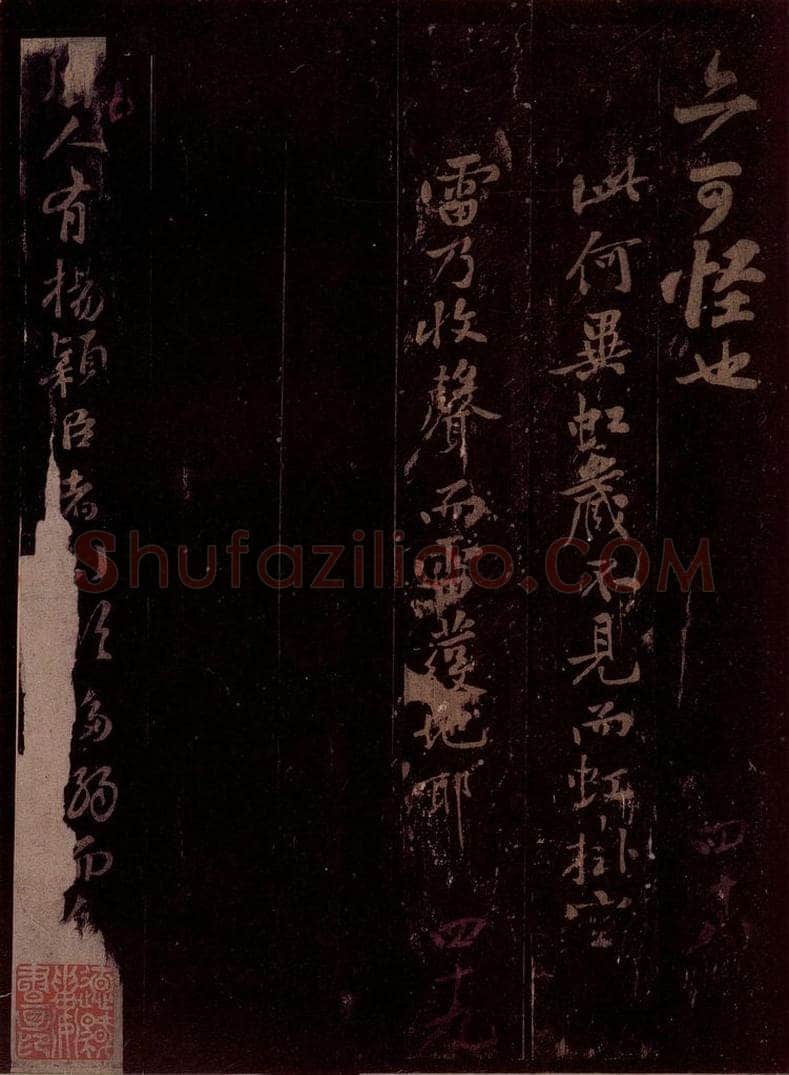 亦可怪也
四十八
此何異虹藏不見而虹掛空
雷乃收聲而雷發地耶
四十九
人有楊穎臣者
多弱而
Shufaziliao.COM